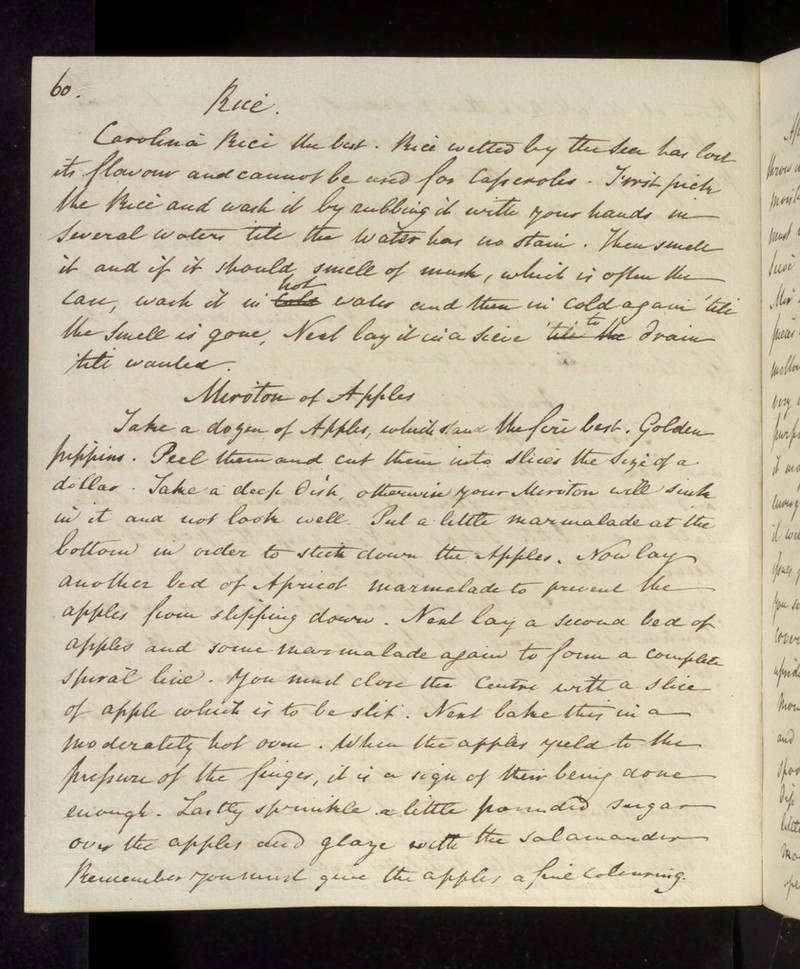 60.
Rice.
Carolina Rice the best. Rice wetted by the Sea has lost
its flavour and cannot be used for Casseroles. First pick
the Rice and wash it by rubbing it with your hands in
several waters till the water has no stain. Then smell
it and if it should smell of musk, which is often the
case, wash it in cold hot water and then in cold again 'till
the smell is gone, Next lay it in a Sieve 'till the to drain
'till wanted.
Miroton of Apples
Take a dozen of Apples, which stand the fire best. Golden
pippins. Peel them and cut them into slices the size of a
dollar. Take a deep Dish, otherwise your Miroton will sink
in it and not look well. Put a little marmalade at the
bottom in order to stick down the Apples. Now lay
another bed of Apricot marmelade to prevent the
apples from slipping down. Next lay a second bed of
apples and some marmalade again to form a complete
spiral line. You must close the Centre with a slice
of apple which is to be slit. Next bake this in a
moderately hot oven. When the apples yield to the
pressure of the finger, it is a sign of their being done
enough. Lastly sprinkle a little pounded sugar
over the apples and glaze with the salamander
Remember you must give the apples a fine colouring.